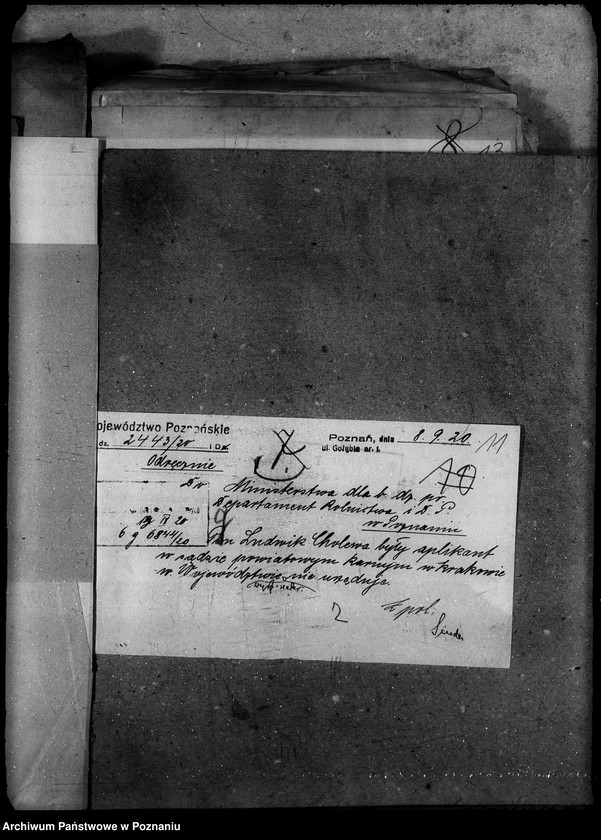 8 13
ojewództwo Poznańskie
dz. 2443/20 I D
Poznań, dnia 8. 9. 20.
ul. Gołębia nr. 1.
11
Odręcznie
10
Do
Ministerstwa dla b. dz. pr.
Departament Rolnictwa i D. P.
w Poznaniu
IX 20
6 g 6844/20
Pan Ludwik Cholewa były aplikant
w sądzie powiatowym karnym w Krakowie
w Województwie nie urzęduje.
Z pol.
2
Archiwum Państwowe w Poznaniu